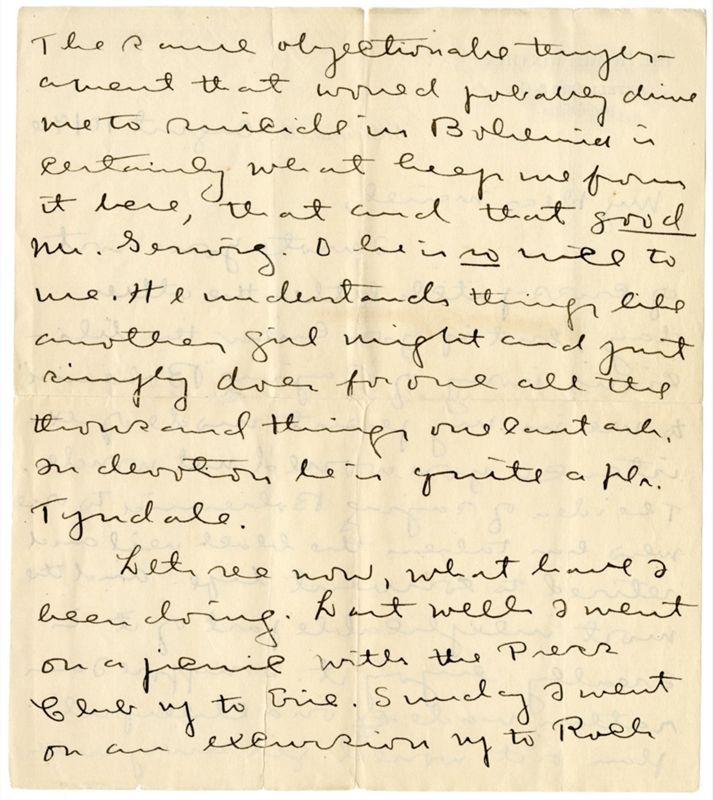 The same objectionable temper-
ament that would probably drive
me to suicide in Bohemia is
certainly what keeps me from
it here, that and that good
Mr. Gerwig. O he is so nice to
me. He understands things like
another girl might and just
simply does for one all the
thousand things one cant ask.
In devotion he is quite a
Tyndale.
Lets see now, what have I
been doing. Last week I went
on a picnic with the Press
Club up to Erie. Sunday I went
on an excursion up to Rock